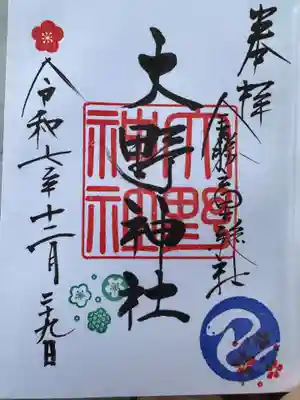 奉拝
大野神社
大野神社
令和七年十二月二十九日